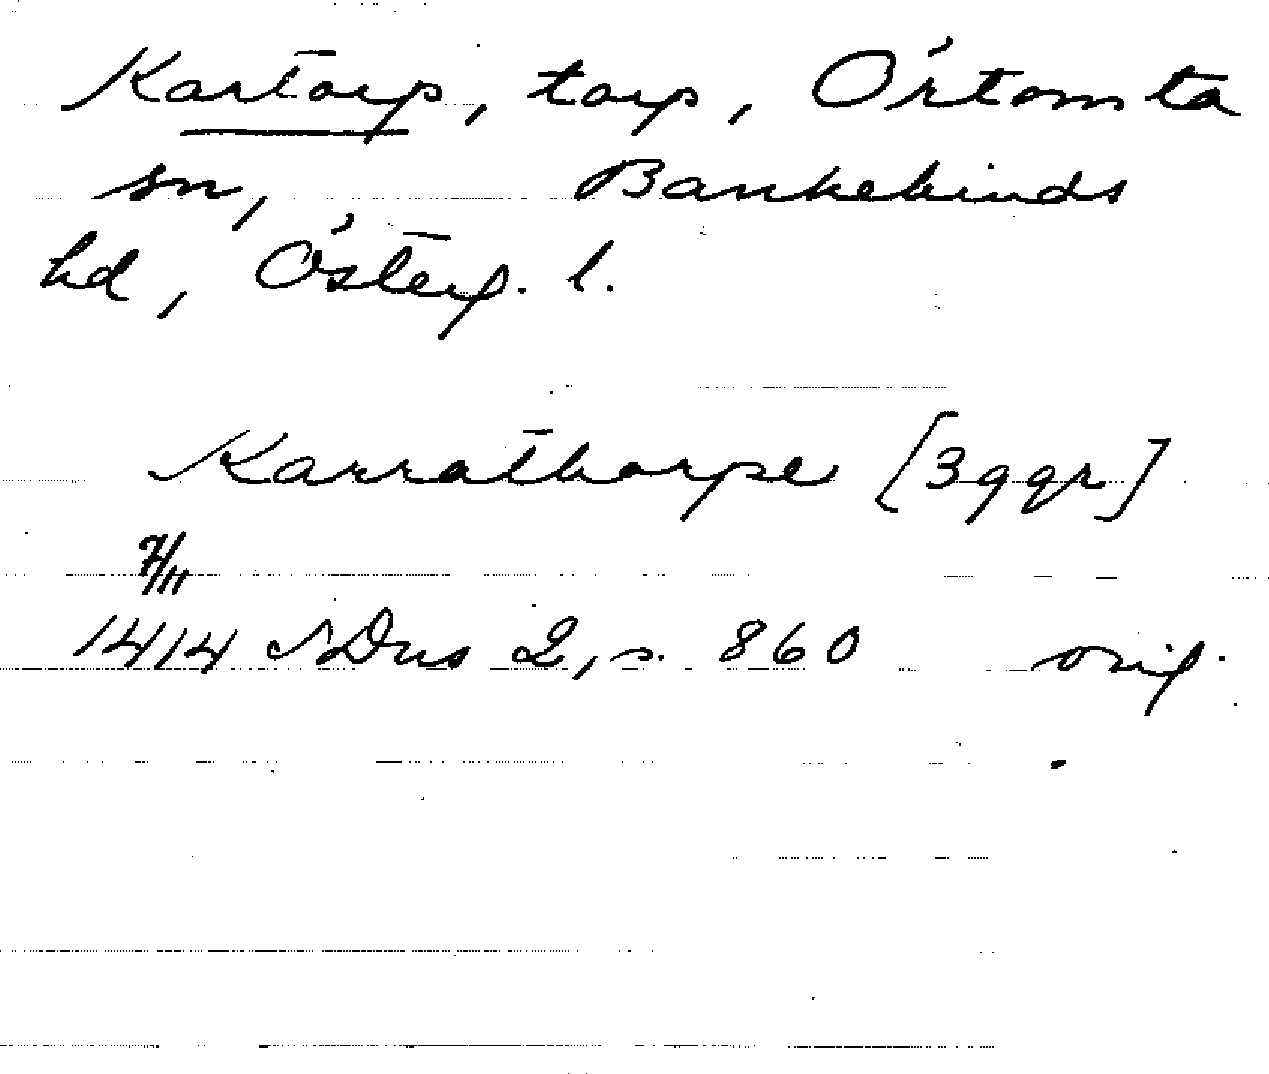 Kartorp, torp, Örtomta
sn, Bankekinds
hd, Österg. l.
Karrathorpe [3 ggr]
7/11
1414 SDns 2, s. 860 orig.